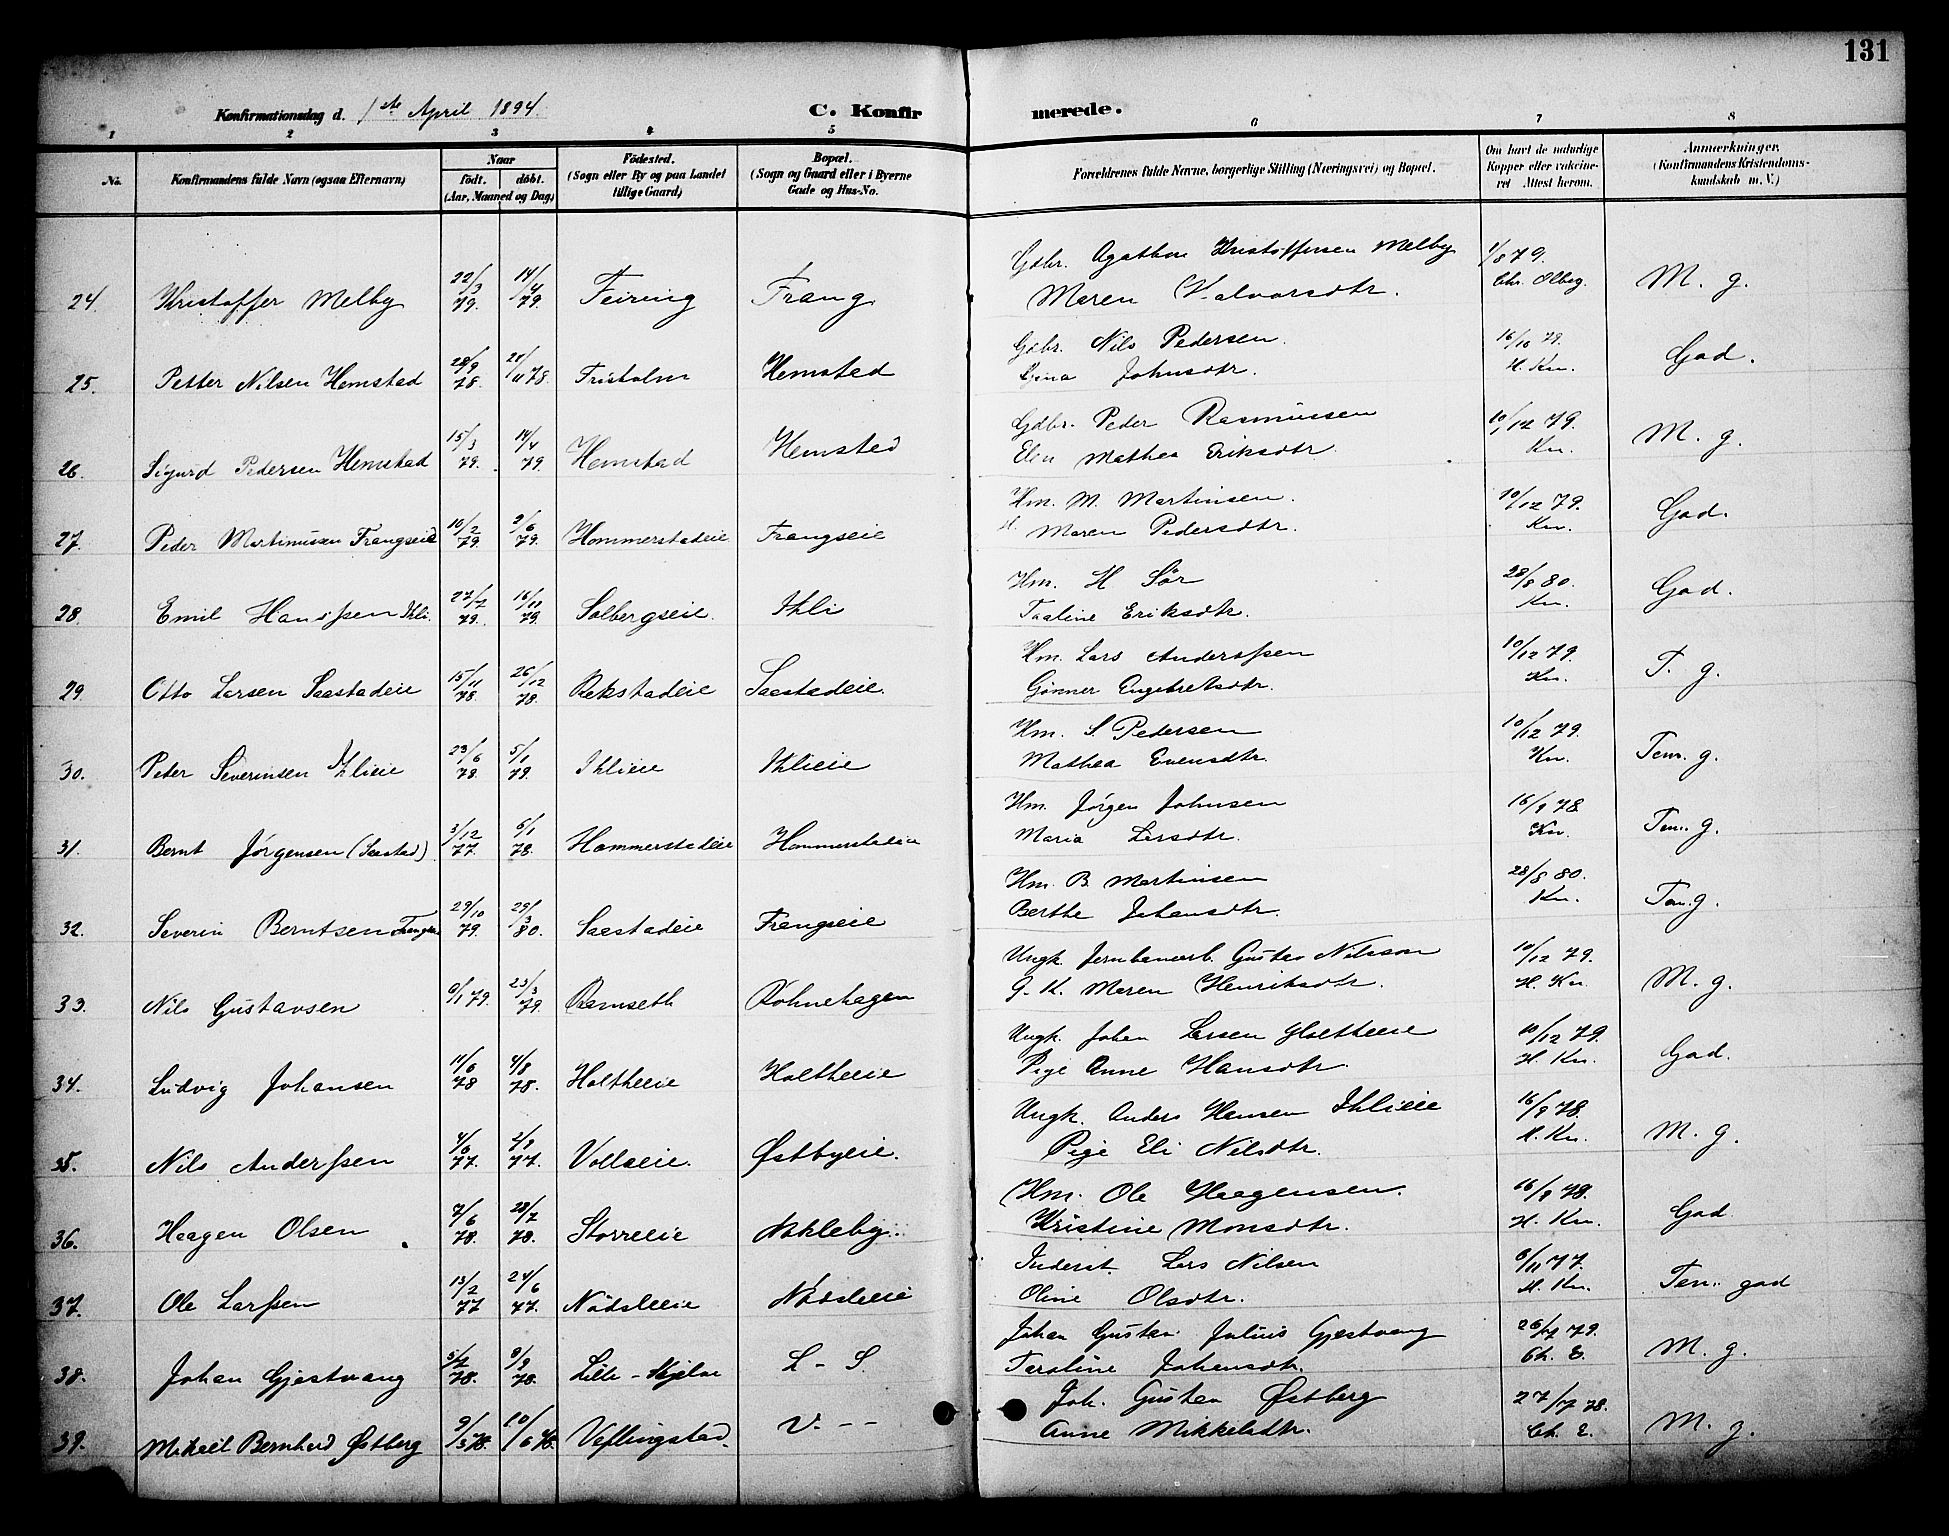 131
Konfirmationsdag d. 1ste April 1894.
C. Konfirmerede.
1 2 3 4 5 6 7 8
No. Konfirmandens fulde Navn (ogsaa Efternavn) Naar födt. döbt. (Aar, Maaned og Dag) Födested. (Sogn eller By og paa Landet tillige Gaard) Bopæl. (Sogn og Gaard eller i Byerne Gade og Hus-No. Forældrenes fulde Navne, borgerlige Stilling (Næringsvei) og Bopæl. Om havt de naturlige Kopper eller vakcineret Attest herom. Anmærkninger. (Konfirmandens Kristendomskundskab m. V.)
24. Kristoffer Melby 22/3 79. 14/4 79. Feiring Frang Gdbr. Agathon Kristoffersen Melby 1/8 79.
Maren Halvorsdtr. Chr. Olberg. M. g.
25. Petter Nilsen Hemstad 28/9 78. /11 78. Frisholm Hemstad Gdbr. Nils Pedersen. 16/10 79.
Gina Johnsdtr. H. Kn. God.
26. Sigurd Pedersen Hemstad 15/3 79. 14/4 79. Hemstad Hemstad Gdbr. Peder Rasmussen 10/12 79.
Elen Mathea Eriksdtr. Kn. M. g.
27. Peder Martinussen Frangseie 10/2 79. 2/6 79. Hommerstadeie Frangseie Hm. M. Martinsen. 10/12 79.
Maren Pedersdtr. Kn. God.
28. Emil Hanssen Ihli. 27/7 79. 16/11 79. Solbergseie. Ihli Hm. H Sör 28/8 80.
Taaline Eriksdtr. Kn. God.
29. Otto Larsen Saastadeie 15/11 78. 26/12 78. Rekstadeie Saastadeie. Hm. Lars Anderssen 10/12 79.
Gönner Engebretsdtr. Kn. T. g.
30. Peder Severinsen Ihlieie 23/6 78. 5/1 79. Ihlieie Ihlieie Hm. S. Pedersen 10/12 79.
Mathea Evensdtr. Kn. Tem. g.
31. Bernt Jörgensen (Saastad) 3/12 77. 6/1 78. Hammerstadeie Hommerstadeie Hm. Jörgen Johnsen 16/9 78.
Maria Larsdtr. Kn. Tem. g.
32. Severin Berntsen Frangseie 29/10 79. 29/3 80. Saastadeie Frangseie Hm. B. Martinsen 28/8 80.
Berthe Johansdtr. Kn. Tem. g.
33. Nils Gustavsen 6/1 79. 23/3 79. Ramseth Röhnehagen Ungk. Jernbanearb. Gustav Nilsson 10/12 79.
G. K. Maren Henriksdtr. H. Kn. M. g.
34. Ludvig Johansen 11/6 78 4/8 78. Holtheeie Holtheeie Ungk. Johan Larsen Holtheeie 10/12 79.
Pige Anne Hansdtr. H. Kn. God.
35. Nils Anderssen 4/6 77. 2/9 77. Vollaeie. Østbyeie. Ungk. Anders Hansen Ihlieie 16/9 78.
Pige Eli Nilsdtr. H. Kn. M. g.
36. Haagen Olsen 7/6 78. 28/7 78. Storreeie Nokleby Hm. Ole Haagensen. 16/9 78.
Kristine Monsdtr. H. Kn. God
37. Ole Larssen 13/2 77 24/6 77. Nödsleeie Nödsleeie Inderst. Lars Nilsen 6/11 77.
Oline Olsdtr. H. Kn. Tem. god
38. Johan Gjestvang 5/7 78. 8/9 78. Lille-Hjelm L - S Johan Gustav Julius Gjestvang 26/7 79.
Taroline Johansdtr. Ch. E. M. g.
39. Mikael Bernhard Østberg 9/3 78. 10/6 78. Veflingstad. V. - - Joh. Gustav Østberg 27/7 78.
Anne Mikkelsdtr. Ch. E. M. g.